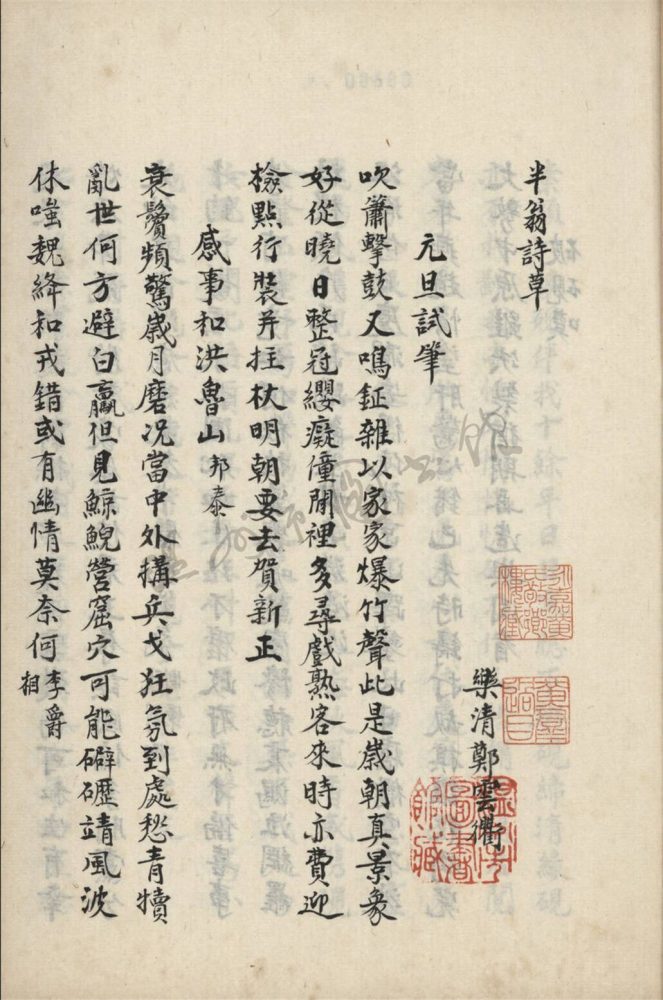 半翁詩草
樂清鄭雲衢
元旦試筆
吹簫擊鼓又鳴鉦雜以家家爆竹聲此是歲朝真景象
好從曉日整冠纓癡僮閒裡多尋戲熟客來時亦費迎
檢點行裝并拄杖明朝要去賀新正
感事和洪魯山邦泰
衰鬢頻驚歲月磨况當中外搆兵戈狂氛到處愁青犢
亂世何方避白臝但見鯨鯢營窟穴可能礔礰靖風波
休嗤魏絳和戎錯或有幽情莫奈何李爵相